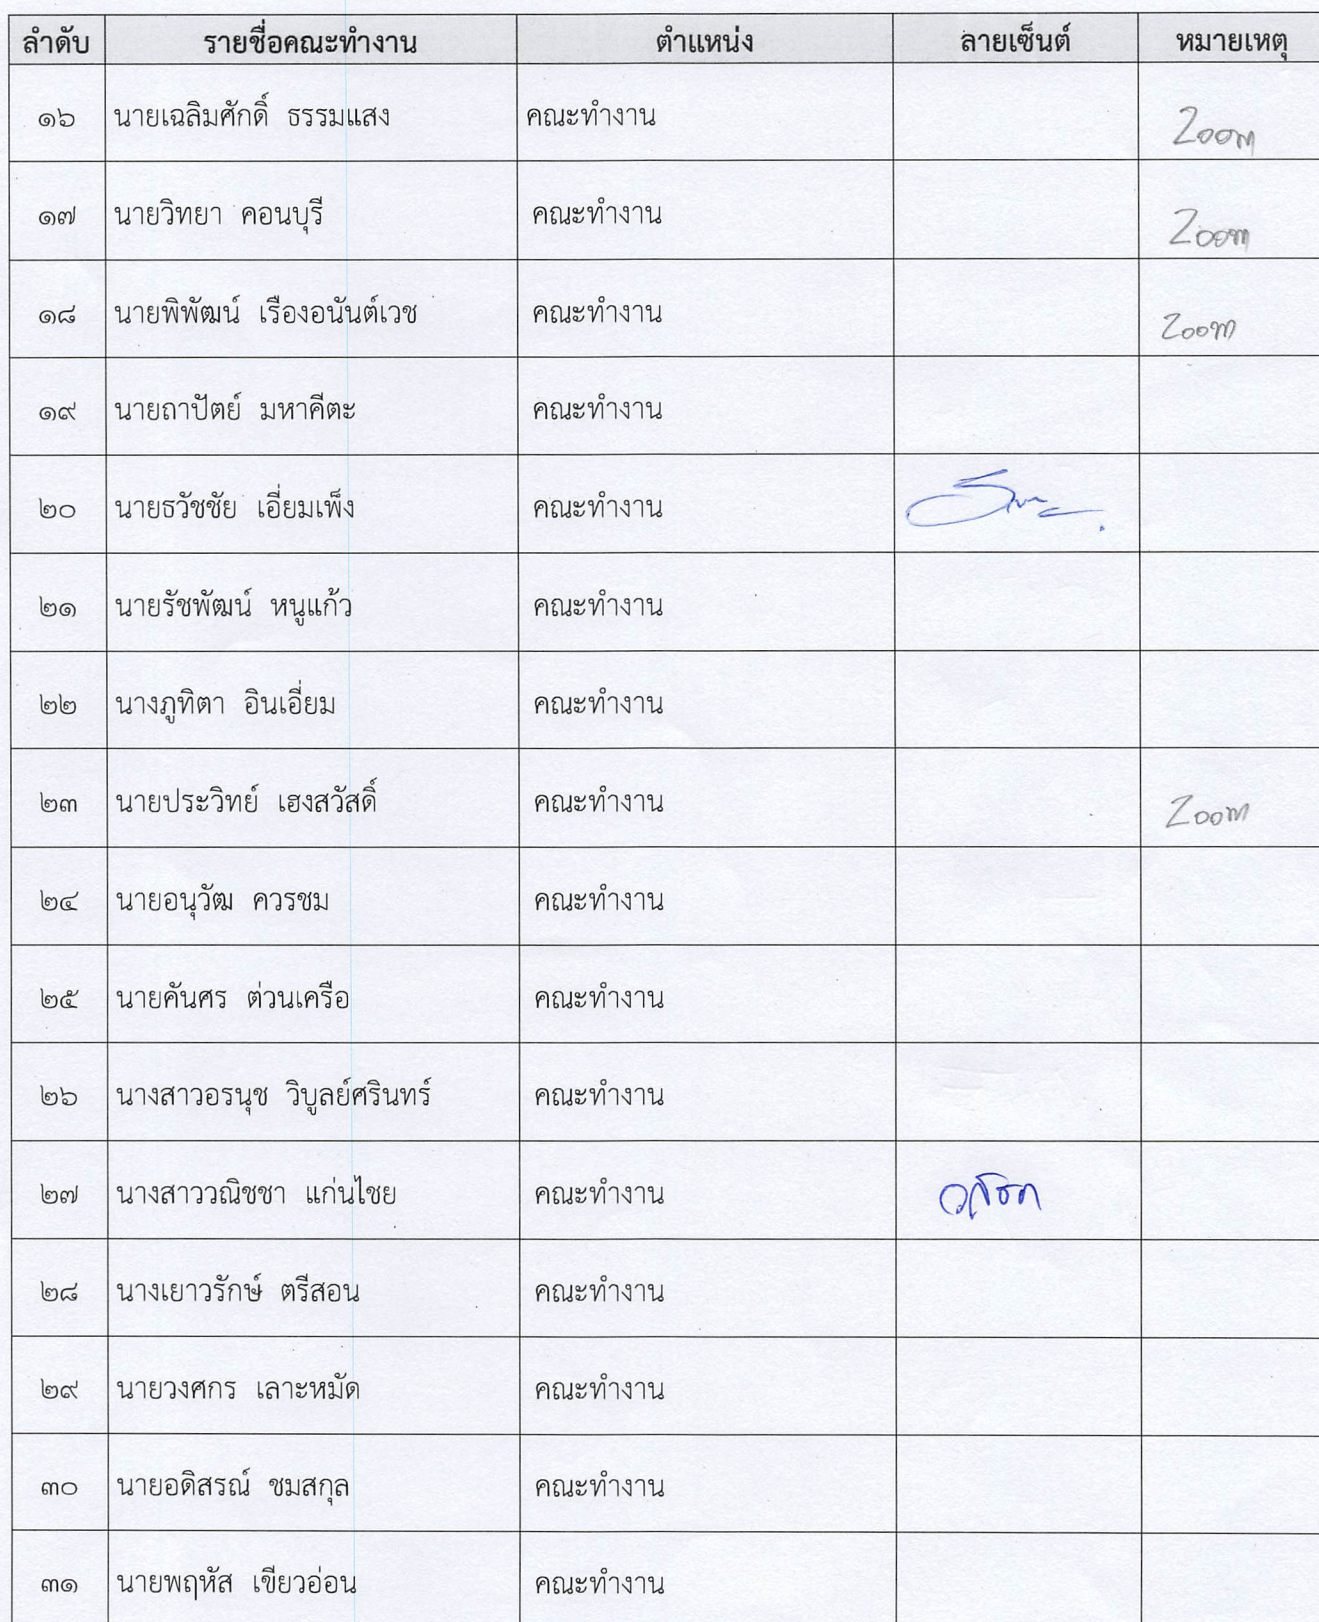 ลำดับ รายชื่อคณะทำงาน ตำแหน่ง ลายเซ็นต์ หมายเหตุ
๑๖ นายเฉลิมศักดิ์ ธรรมแสง คณะทำงาน Zoom
๑๗ นายวิทยา คอนบุรี คณะทำงาน Zoom
๑๘ นายพิพัฒน์ เรืองอนันต์เวช คณะทำงาน Zoom
๑๙ นายถาปัตย์ มหาคีตะ คณะทำงาน
๒๐ นายธวัชชัย เอี่ยมเพ็ง คณะทำงาน
๒๑ นายรัชพัฒน์ หนูแก้ว คณะทำงาน
๒๒ นางภูทิตา อินเอี่ยม คณะทำงาน
๒๓ นายประวิทย์ เฮงสวัสดิ์ คณะทำงาน Zoom
๒๔ นายอนุวัฒ ควรชม คณะทำงาน
๒๕ นายคันศร ต่วนเครือ คณะทำงาน
๒๖ นางสาวอรนุช วิบูลย์ศรินทร์ คณะทำงาน
๒๗ นางสาววณิชชา แก่นไชย คณะทำงาน
๒๘ นางเยาวรักษ์ ตรีสอน คณะทำงาน
๒๙ นายวงศกร เลาะหมัด คณะทำงาน
๓๐ นายอดิสรณ์ ชมสกุล คณะทำงาน
๓๑ นายพฤหัส เขียวอ่อน คณะทำงาน